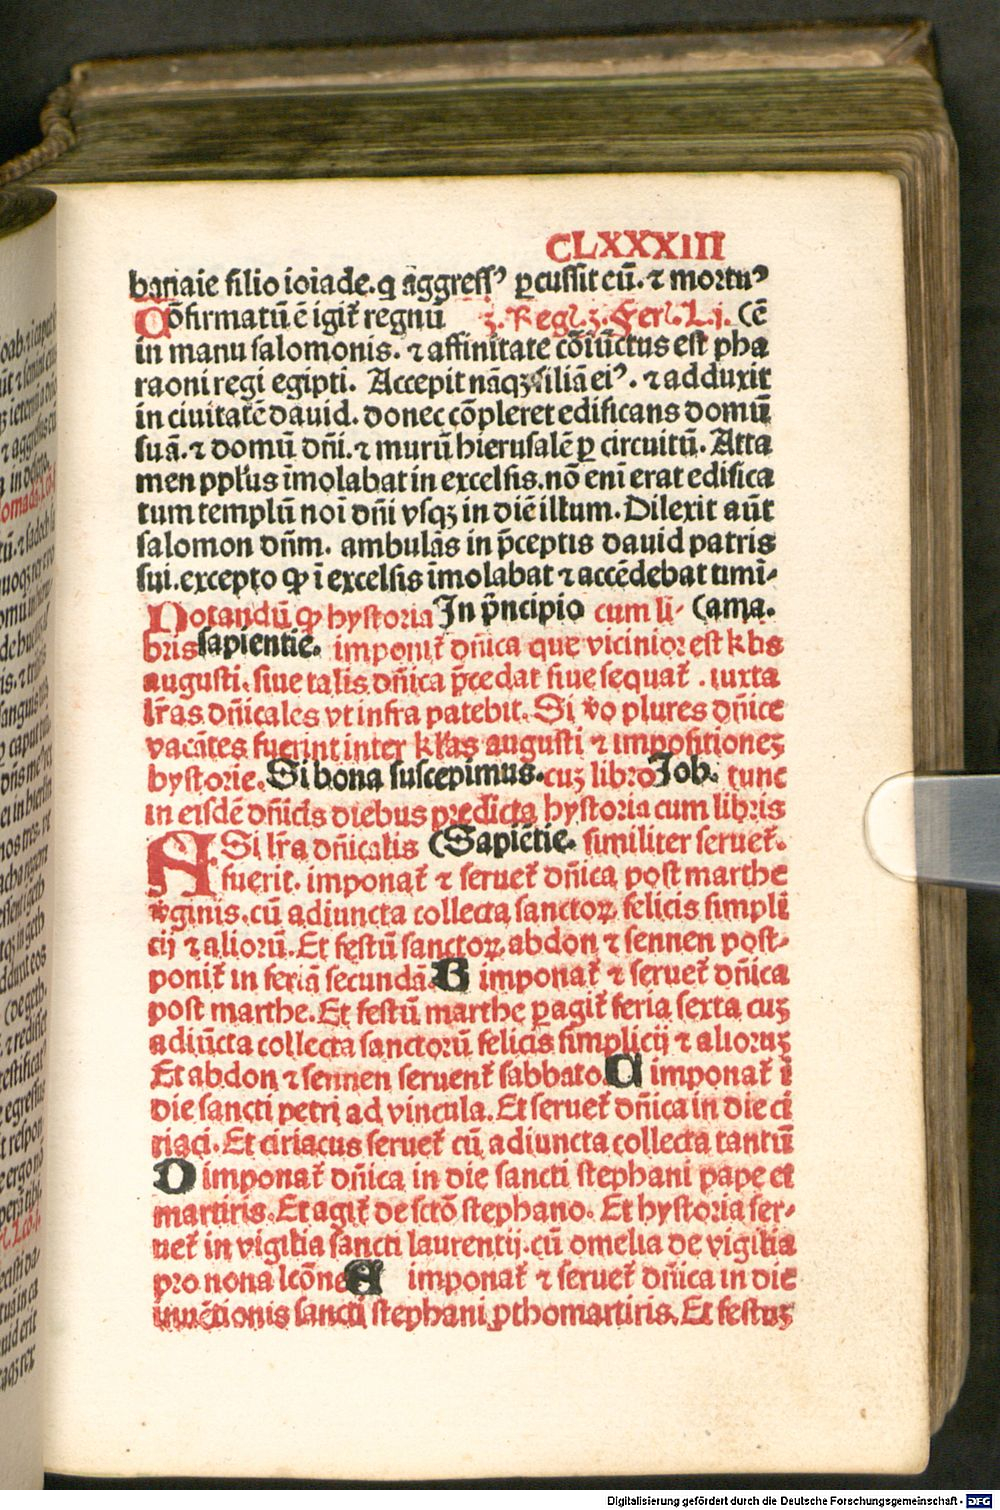 CLXXXIII
banaie filio ioiade. q aggressꝰ ꝑcussit eū. ⁊ mortuꝰ
Cōfirmatū ē igit᷑ regnū 3. Reg. 3. Fer. L. j. (ē
in manu salomonis. ⁊ affinitate cōiūctus est pha
raoni regi egipti. Accepit nāqꝫ filiā eiꝰ. ⁊ adduxit
in ciuitatē dauid. donec cōpleret edificans domū
suā. ⁊ domū dn̄i. ⁊ murū hierusalē ꝑ circuitū. Atta
men ppl̓us īmolabat in excelsis. nō eni erat edifica
tum templū noi dn̄i vsqꝫ in diē illum. Dilexit aūt
salomon dn̄m. ambulās in p̄ceptis dauid patris
sui. excepto ꝙ ī excelsis īmolabat ⁊ accēdebat timi-
Notandū ꝙ hystoria In p̄ncipio cum li- (ama.
bris sapientie. imponit᷑ dn̄ica que vicinior est kl̓is
augusti. siue talis dn̄ica p̄cedat siue sequat᷑. iuxta
lr̄as dn̄icales vt infra patebit. Si v̓o plures dn̄ice
vacātes fuerint inter kl̓as augusti ⁊ impositioneꝫ
hystorie. Si bona suscepimus. cuꝫ libro Job. tunc
in eisdē dn̄icis diebus predicta hystoria cum libris
A Si lr̄a dn̄icalis (Sapiētie. similiter seruet᷑.
fuerit. imponat᷑ ⁊ seruet᷑ dn̄ica post marthe
v̓ginis. cū adiuncta collecta sanctoꝝ felicis simpli
cij ⁊ aliorū. Et festū sanctoꝝ abdon ⁊ sennen post-
ponit᷑ in feriā secundā. B imponat᷑ ⁊ seruet᷑ dn̄ica
post marthe. Et festū marthe ꝑagit᷑ feria sexta cuꝫ
adiūcta collecta sanctorū felicis simplicij ⁊ alioruꝫ
Et abdon ⁊ sennen seruent᷑ sabbato. C imponat᷑ ī
die sancti petri ad vincula. Et seruet᷑ dn̄ica in die ci
riaci. Et ciriacus seruet᷑ cū adiuncta collecta tantū
D imponat᷑ dn̄ica in die sancti stephani pape et
martiris. Et agit᷑ de sctō stephano. Et hystoria ser-
uet᷑ in vigilia sancti laurentij. cū omelia de vigilia
pro nona lcōne. E imponat᷑ ⁊ seruet᷑ dn̄ica in die
inuētionis sancti stephani ꝓthomartiris. Et festuꝫ
Digitalisierung gefördert durch die Deutsche Forschungsgemeinschaft - DFG